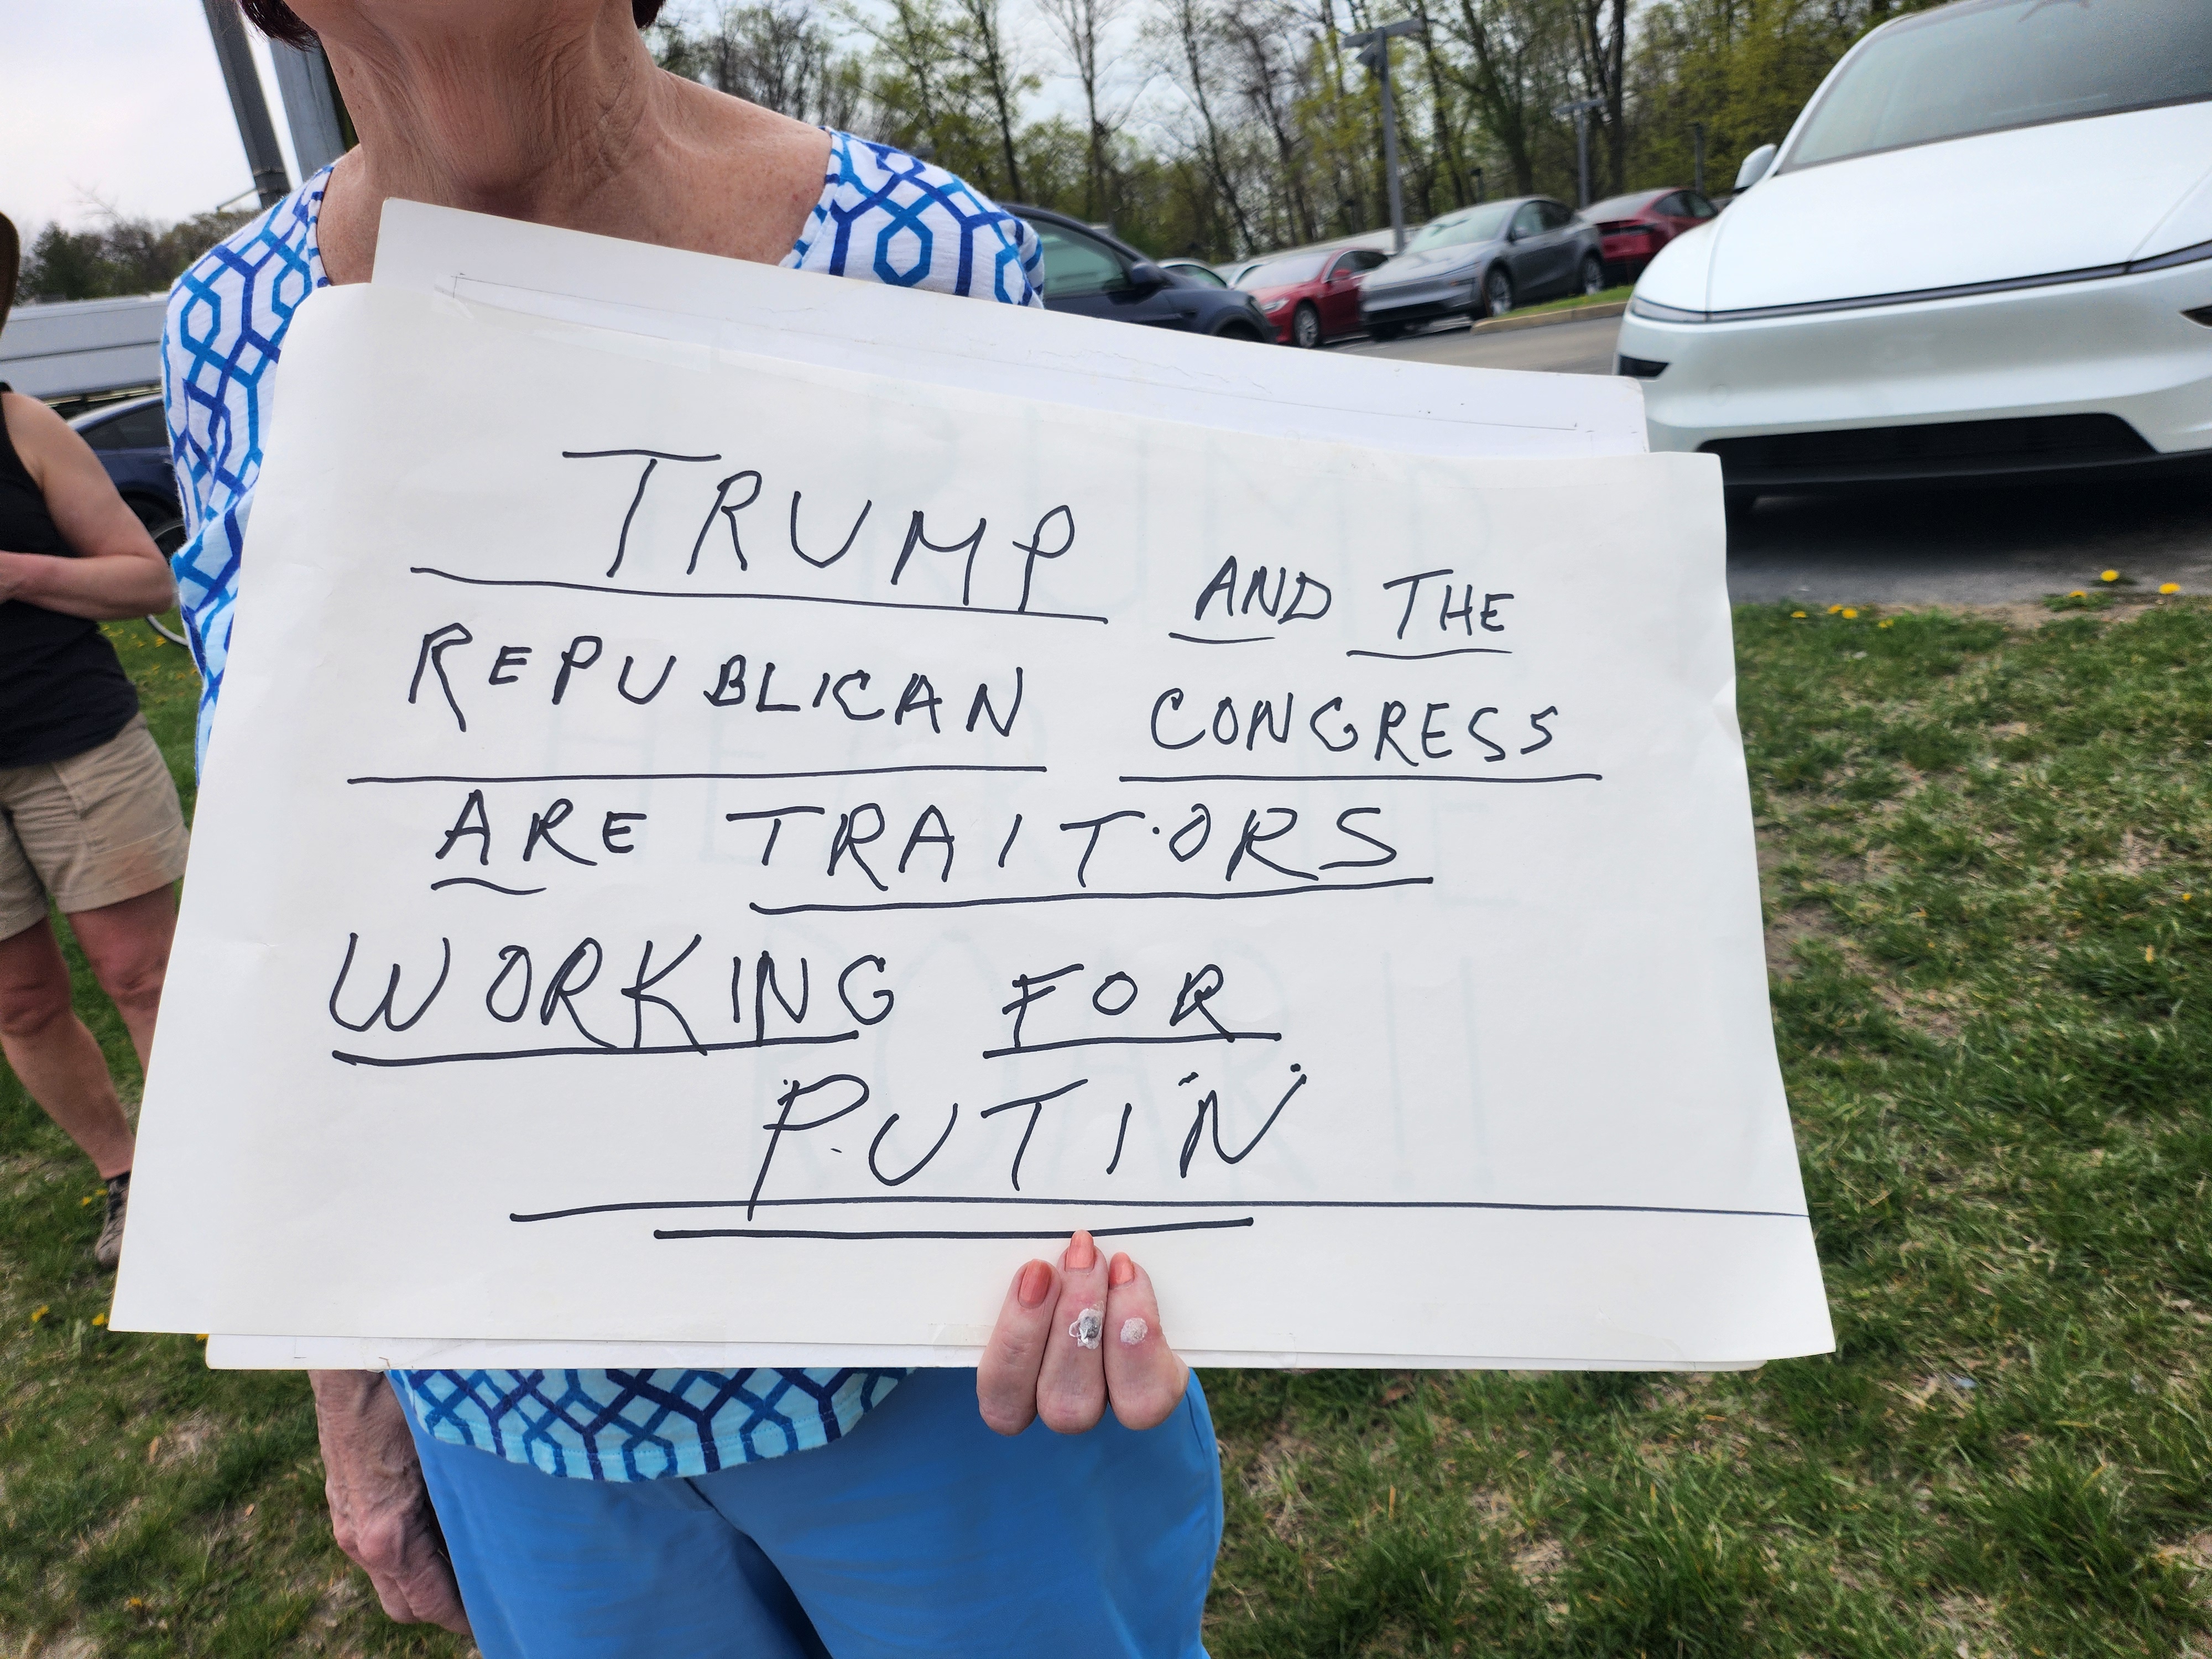 TRUMP AND THE
REPUBLICAN CONGRESS
ARE TRAITORS
WORKING FOR
PUTIN